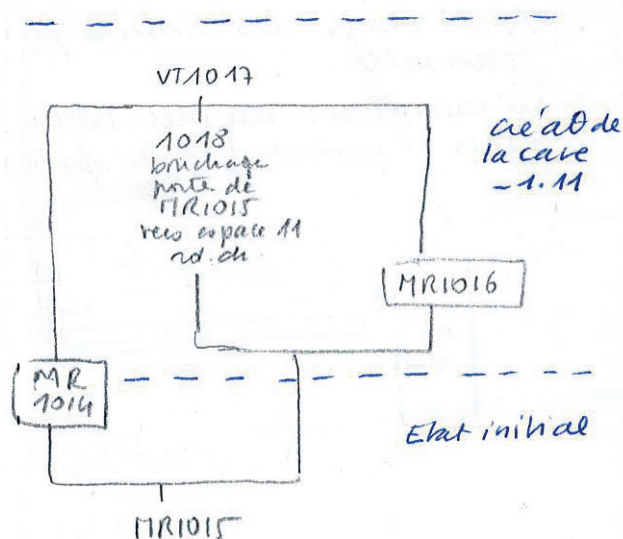 VT1017
1018
bouchage
porte de
MR1015
vers espace 11
rd. ch
créat° de
la cave
-1.11
MR1016
MR
1014
Etat initial
MR1015